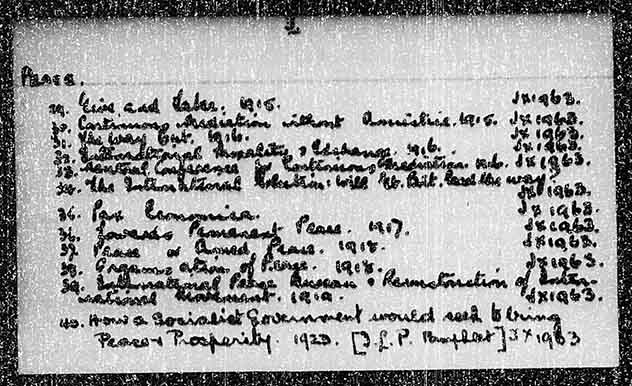 Peace.
29. Give and take. 1915. JX1963.
30. Continuous Mediation without Armistice. 1915. JX1963.
31. The Way Out. 1916. JX1963.
32. International Morality & Exchange. 1916. JX1963.
33. Neutral Conference for Continuous Mediation. n.d. JX1963.
34. The International Solution: Will Gt. Brit. lead the way?
JX1963.
35. Pax Economica. JX1963.
36. Towards Permanent Peace. 1917. JX1963.
37. Peace or Armed Peace. 1918. JX1963.
38. Organisation of Peace. 1918. JX1963.
39. International Peace Bureau & Reconstruction of Inter-
national Movement. 1919. JX1963.
40. How a Socialist Government would seek to bring
Peace & Prosperity. 1923. [I.L.P. Pamphlet] JX1963